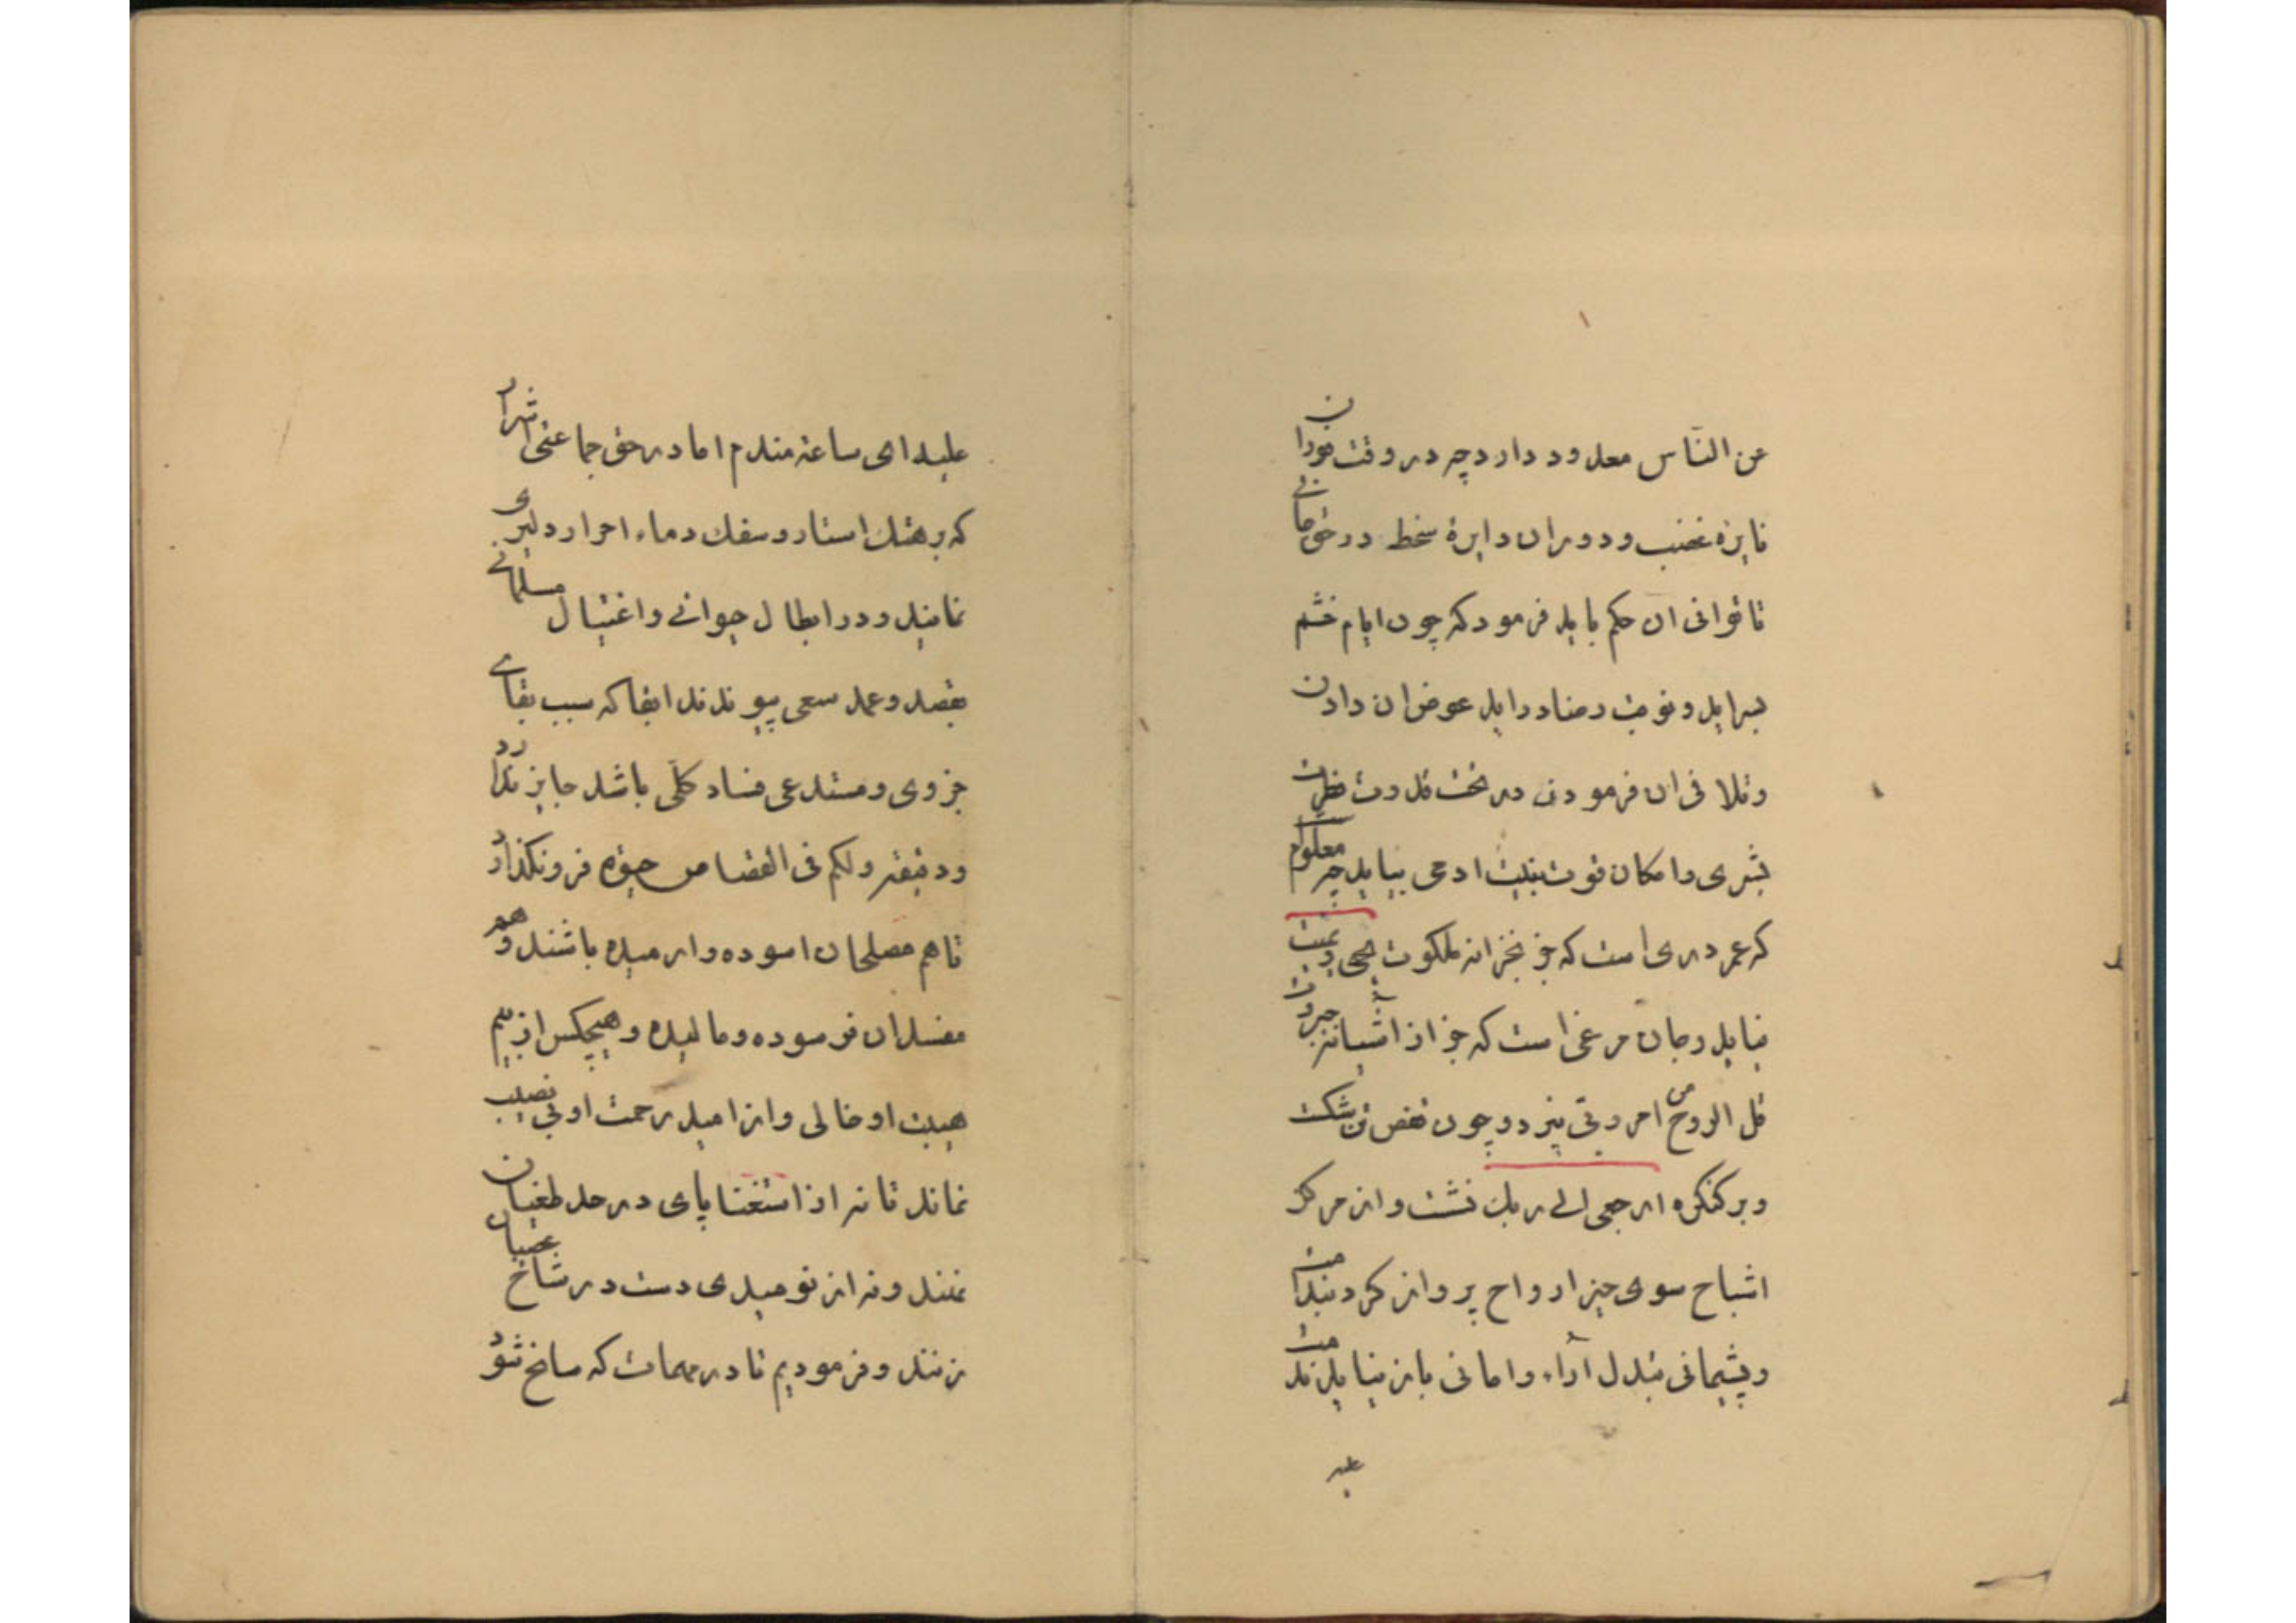 عن الناس معدود دارد چه در وقت فوران
نایره غضب و دوران دایرهٔ سخط در حق جانی
تا توانی ان حکم باید فرمود که چون ایام خشم
بسراید و نوبت رضا دراید عوض ان دادن
و تلافی ان فرمودن در تحت قدرت
بشری و امکان قوت بنیت ادمی بیاید چه معلوم
که عمر دری است که جز بخزانه ملکوت یحیی و یمیت
نیاید و جان مرغی است که جز از آشیانه جبروت
قل الروح من امر ربی نپرد و چون قفص تن شکست
و بر کنکره ارجعی الی ربك نشست و از مرکز
اشباح سوی حیز ارواح پرواز کرد بندامت
و پشیمانی تبدل آراء و امانی باز نیاید ندمت
علیه
علیه ای ساعة مندم اما در حق جماعتی اشرار
که بر هتك استار و سفك دماء احرار دلیری
نمایند و در ابطال حیوانی و اغتیال مسلمانی
بقصد و عمد سعی پیوندند ابقا که سبب بقای
جزوی و مستدعی فساد کلّی باشد جایز ندارد
و دقیقه ولکم فی القصاص حیوة فرونکذارد
تا هم مصلحان اسوده و ارمیده باشند و هم
مفسدان فرسوده و مالیده و هیچکس از بیم
هیبت او خالی و از امید رحمت او بی نصیب
نماند تا نه از استغنا پای در حد طغیان
نهند و نه از نومیدی دست در شاخ عصیان
زنند و فرمودیم تا در مهمات که سانح شود